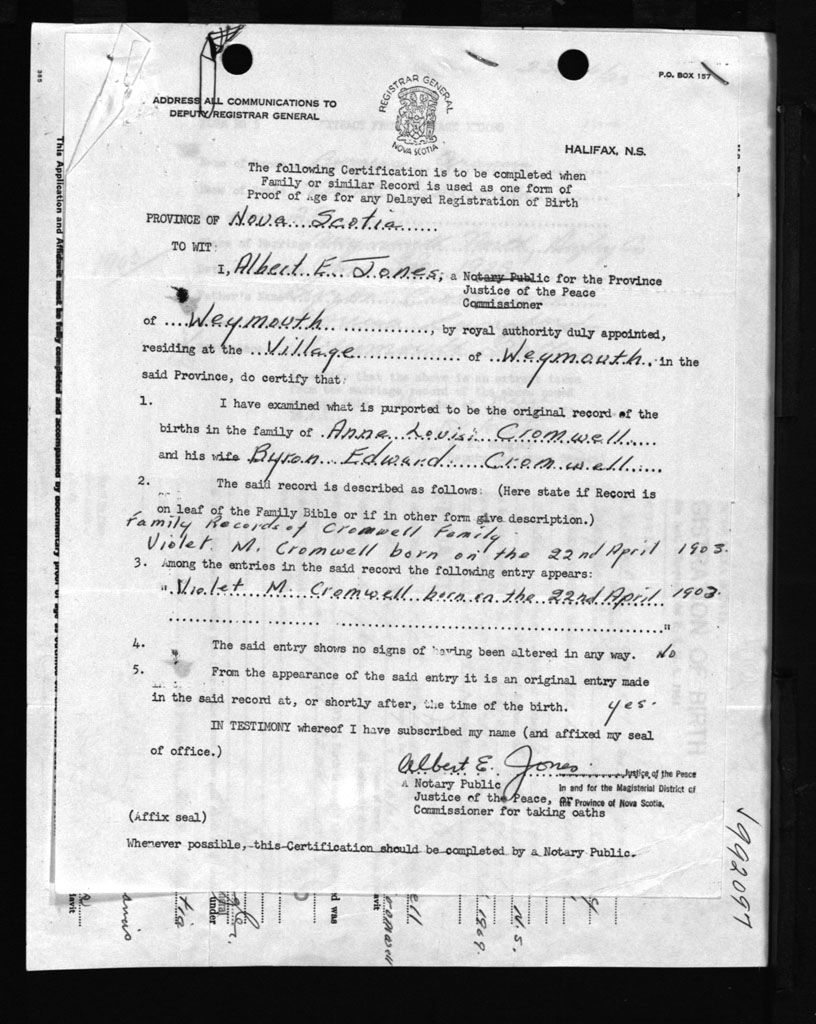 P.O. BOX 157
ADDRESS ALL COMMUNICATIONS TO
DEPUTY REGISTRAR GENERAL
REGISTRAR GENERAL
NOVA SCOTIA
HALIFAX, N.S.
The following Certification is to be completed when
Family or similar Record is used as one form of
Proof of Age for any Delayed Registration of Birth
PROVINCE OF Nova Scotia
TO WIT:
I, Albert E. Jones, a Notary Public for the Province
Justice of the Peace
Commissioner
of Weymouth, by royal authority duly appointed,
residing at the Village of Weymouth, in the
said Province, do certify that:
1. I have examined what is purported to be the original record of the
births in the family of Anna Louisi Cromwell
and his wife Byron Edward Cromwell
2. The said record is described as follows: (Here state if Record is
on leaf of the Family Bible or if in other form give description.)
Family Records of Cromwell Family
Violet M. Cromwell born on the 22nd April 1903.
3. Among the entries in the said record the following entry appears:
"Violet M. Cromwell born on the 22nd April 1903.
"
4. The said entry shows no signs of having been altered in any way. No
5. From the appearance of the said entry it is an original entry made
in the said record at, or shortly after, the time of the birth. yes.
IN TESTIMONY whereof I have subscribed my name (and affixed my seal
of office.)
Albert E. Jones Justice of the Peace
A Notary Public In and for the Magisterial District of
Justice of the Peace, or Province of Nova Scotia.
Commissioner for taking oaths
(Affix seal)
Whenever possible, this Certification should be completed by a Notary Public.
This Application and Affidavit must be fully completed and accompanied by documentary proof of age
365
1992097
under
avit
d was
1969.
N.S.